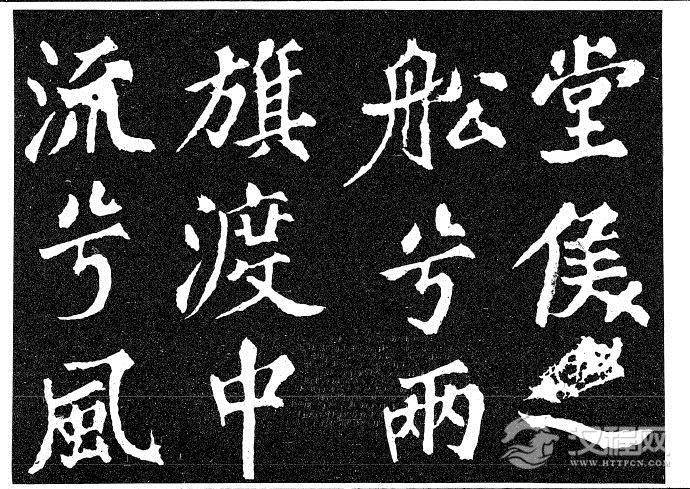 堂侯之
船兮兩
旗渡中
流兮風
汉程网
WWW.HTTPCN.COM